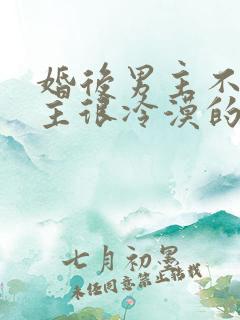 婚后男主不
主很冷漠的
七月初墨
未经同意禁止转载